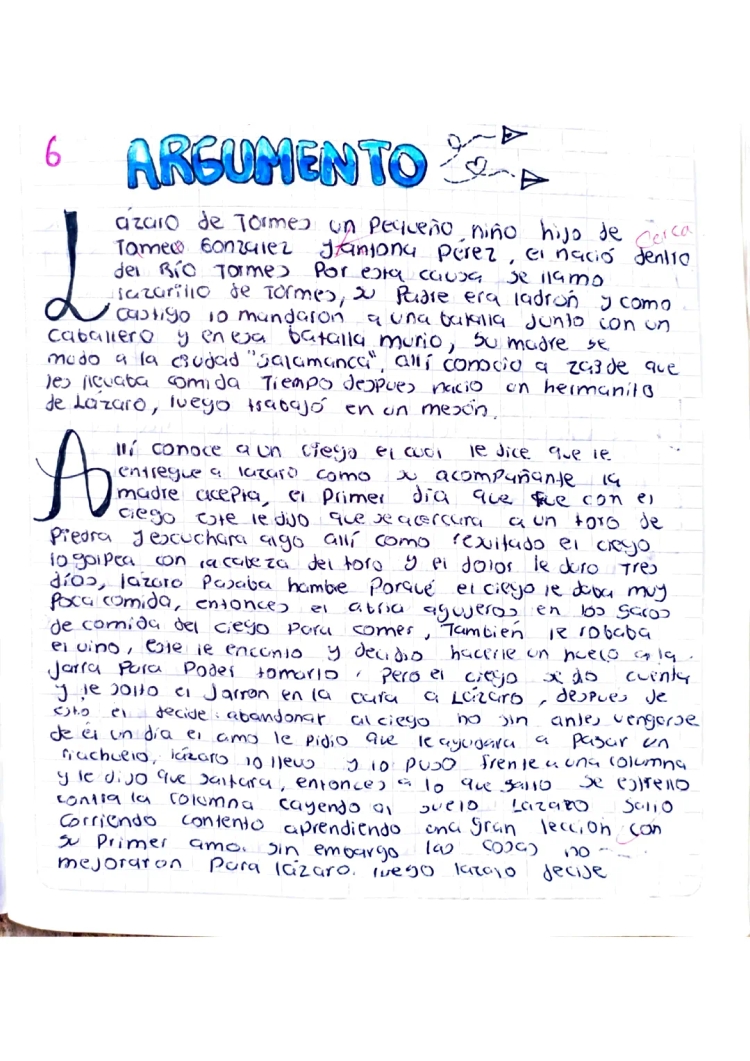 6
ARGUMENTO
Lázaro de Tormes un Pequeño niño hijo de cerca
Tomeo Gonzalez y Antona Pérez, el nació dentro
del Río Tormes Por esta causa se llamo
Lazarillo de Tormes, su Padre era ladrón y como
castigo lo mandaron a una batalla Junto con un
caballero y en esa batalla murio, su madre se
mudo a la ciudad "Salamanca", allí conocio a zaide que
les llevaba comida Tiempo despues nacio un hermanito
de Lázaro, luego trabajó en un mesón.
Allí conoce a un ciego el cual le dice que le
entregue a lazaro como su acompañante la
madre acepta, el Primer día que fue con el
ciego este le dijo que se acercara a un toro de
Piedra y escuchara algo allí como resultado el ciego
lo golpea con la cabeza del toro y el dolor le duro Tres
días, lázaro Pasaba hambe Porqué el ciego le daba muy
Poca comida, entonces el abria agujeros en los sacos
de comida del ciego Para comer, También le robaba
el vino, este le encanto y decidio hacerle un hueco a la
Jarra Para Poder tomarlo, Pero el ciego se dio cuenta
y le solto el Jarron en la cara a Lázaro, despues de
esto el decide abandonar al ciego no sin antes vengarse
de él un día el amo le Pidio que le ayudara a Pasar un
riachuelo, lázaro lo llevo y lo puso frente a una columna
y le dijo que saltara, entonces a lo que salto se estrello
contra la columna cayendo al suelo Lázaro Salio
Corriendo contento aprendiendo una gran lección con
su Primer amo. sin embargo las cosas no
mejoraron Para lázaro. luego lazaro decide